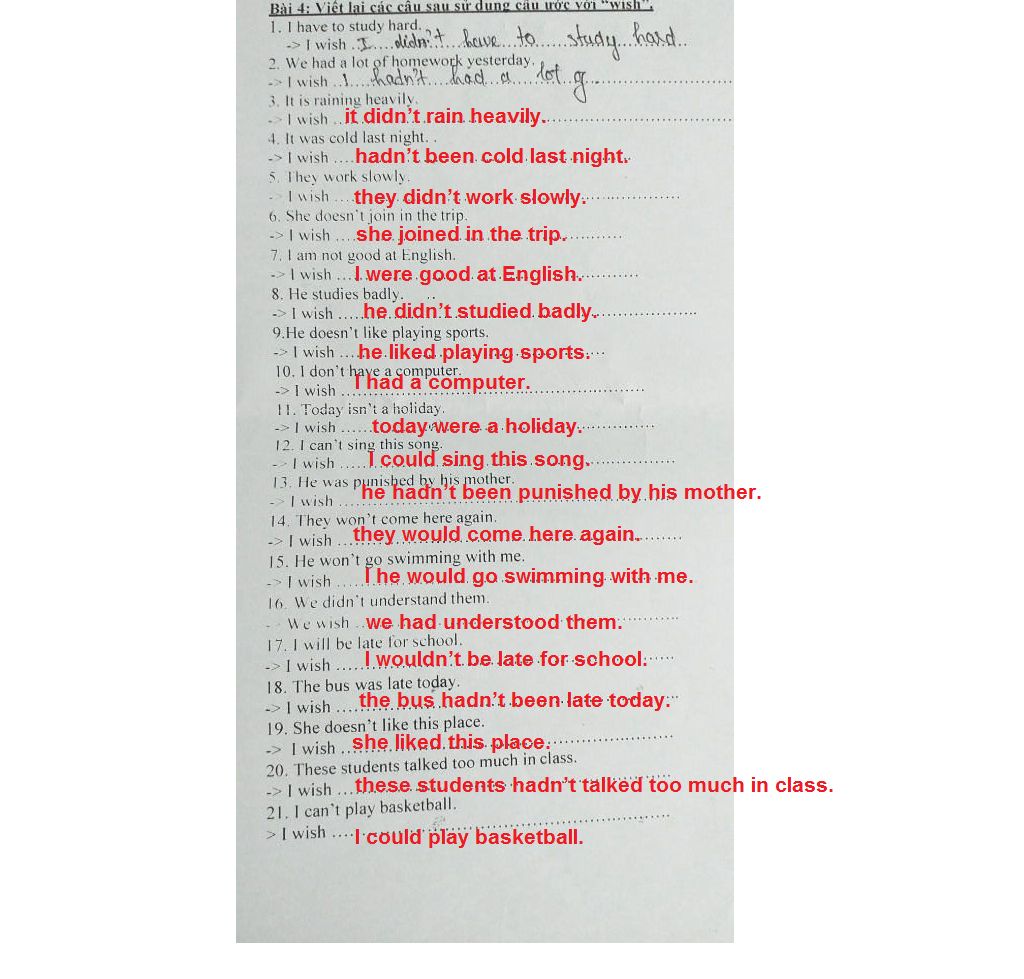 Bài 4: Viết lại các câu sau sử dụng câu ước với “wish”.
1. I have to study hard.
-> I wish . I didn't have to study hard
2. We had a lot of homework yesterday.
-> I wish .. I hadn't had a lot
3. It is raining heavily.
-> I wish .. it didn’t rain heavily.
4. It was cold last night. .
-> I wish .... hadn’t been cold last night.
5. They work slowly.
-> I wish .... they didn’t work slowly.
6. She doesn’t join in the trip.
-> I wish .... she joined in the trip.
7. I am not good at English.
-> I wish .... I were good at English.
8. He studies badly.
-> I wish ..... he didn’t studied badly.
9.He doesn’t like playing sports.
-> I wish .... he liked playing sports.
10. I don’t have a computer.
-> I wish .... I had a computer.
11. Today isn’t a holiday.
-> I wish ...... today were a holiday.
12. I can’t sing this song.
-> I wish ..... I could sing this song.
13. He was punished by his mother.
-> I wish .... he hadn’t been punished by his mother.
14. They won’t come here again.
-> I wish .... they would come here again.
15. He won’t go swimming with me.
-> I wish .... I he would go swimming with me.
16. We didn’t understand them.
We wish .. we had understood them.
17. I will be late for school.
-> I wish ..... I wouldn’t be late for school.
18. The bus was late today.
-> I wish .... the bus hadn’t been late today.
19. She doesn’t like this place.
-> I wish .... she liked this place.
20. These students talked too much in class.
-> I wish .... these students hadn’t talked too much in class.
21. I can’t play basketball.
> I wish .... I could play basketball.